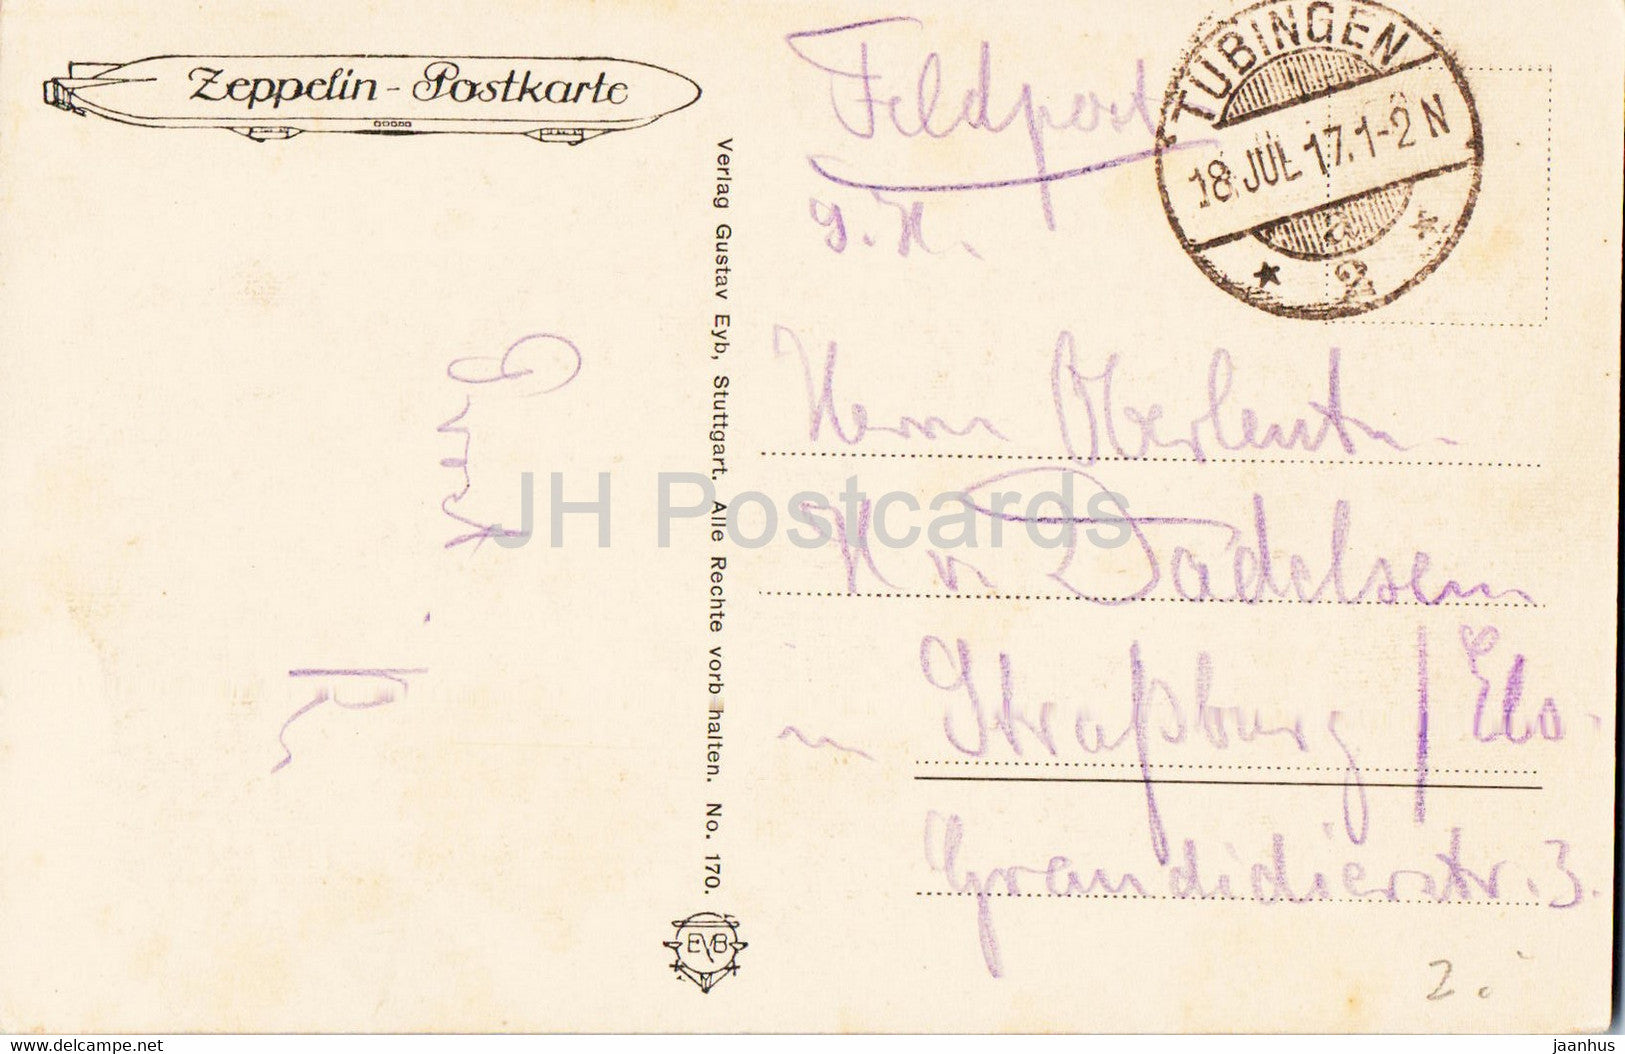 Zeppelin-Postkarte
Feldpost
TÜBINGEN
18.JUL 17.1-2 N
a
* 2 *
Herrn Oberleutn.
H v. Dadelsen
in Straßburg / Els.
Grandidierstr. 3.
Gruß
Verlag Gustav Eyb, Stuttgart. Alle Rechte vorbehalten. No. 170.
EYB
2.
JH Postcards
www.delcampe.net
jaanhus